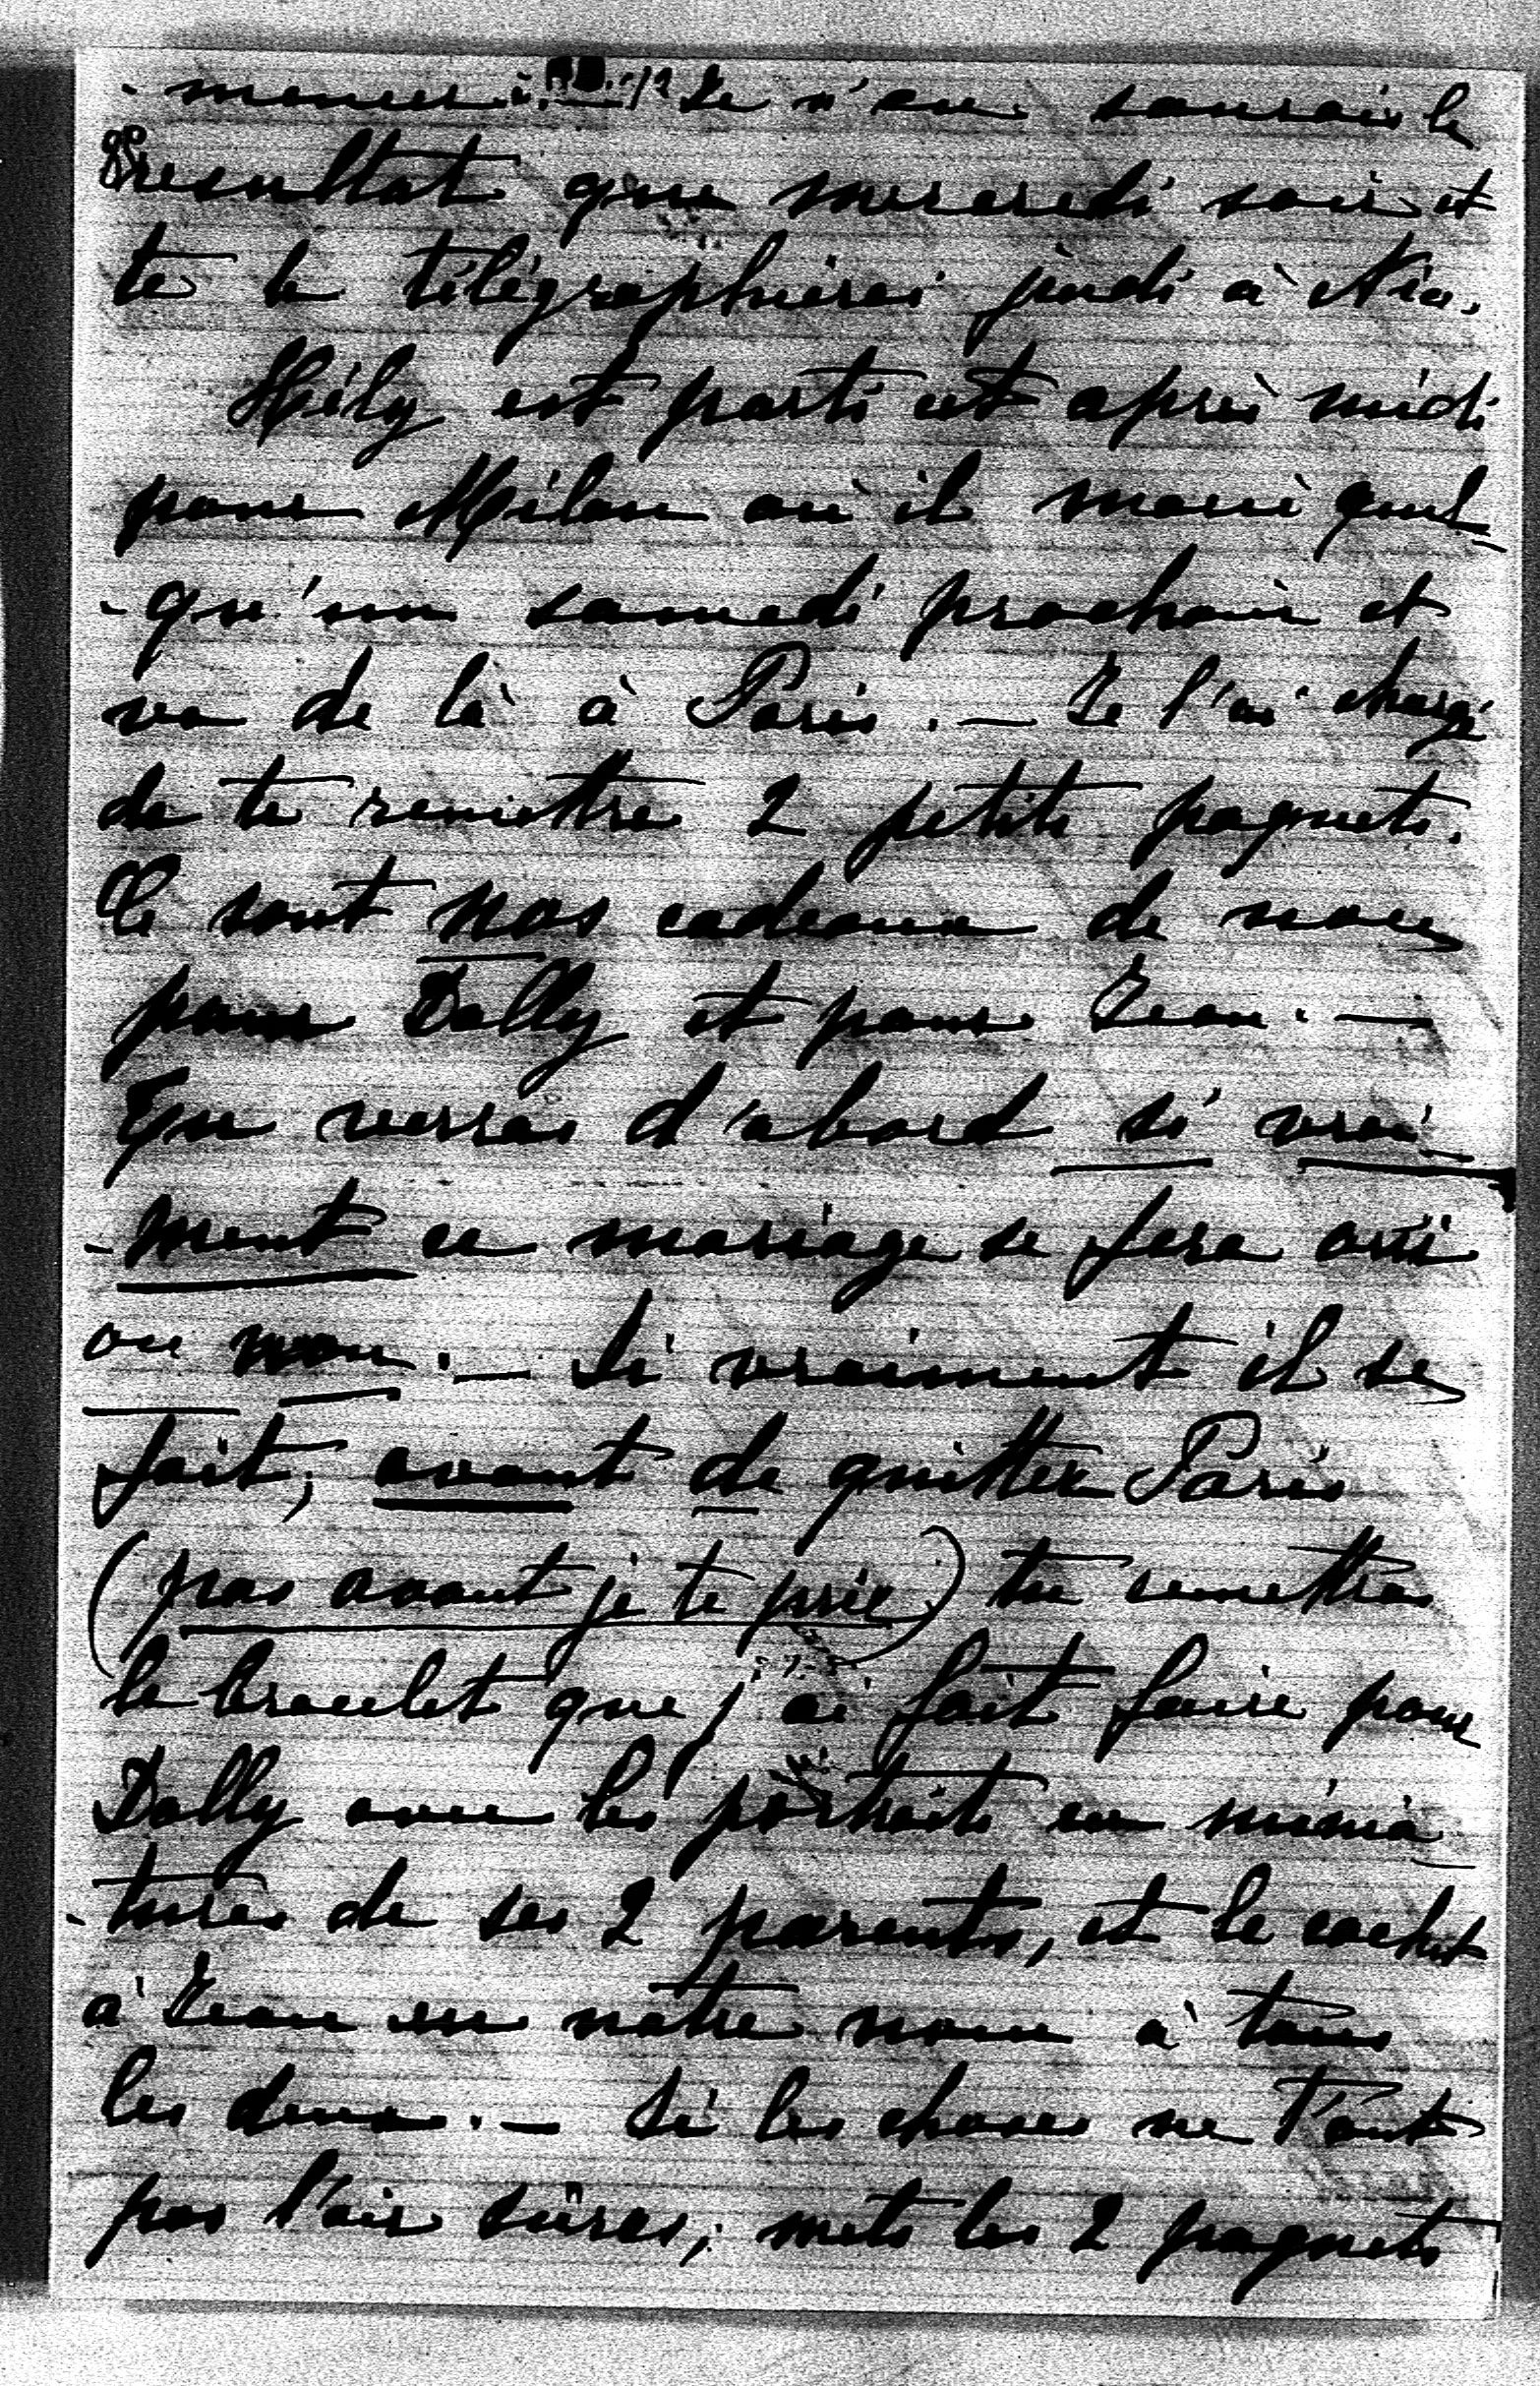 -mencer. Je n'en saurais le
resultat que mercredi soir et
te le télégraphierai jeudi à Nia.
Hély est parti cet après midi
pour Milan où il marie quel-
-qu'un samedi prochain et
va de là à Paris. — Je l'ai chargé
de te remettre 2 petits paquets.
Ce sont nos cadeaux de noces
pour Dolly et pour Jean. —
Tu verras d'abord si vrai-
-ment ce mariage se fera oui
ou non. — Si vraiment il se
fait, avant de quitter Paris
(pas avant je te prie) tu remettras
le bracelet que j'ai fait faire pour
Dolly avec les portraits en minia-
-tures de ses 2 parents, et le cachet
à Jean en notre nom à tous
les deux. — Si les choses ne t'ont
pas l'air sûres, mets les 2 paquets